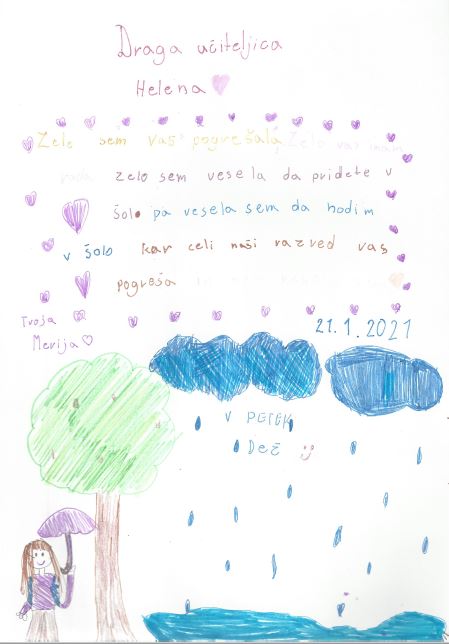 Draga učiteljica
Helena
Zelo sem vas pogrešala, Zelo vas imam
rada zelo sem vesela da pridete v
šolo pa vesela sem da hodim
v šolo kar celi naši razred vas
pogreša
Tvoja
Merija
21.1.2021
V PETEK
DEŽ